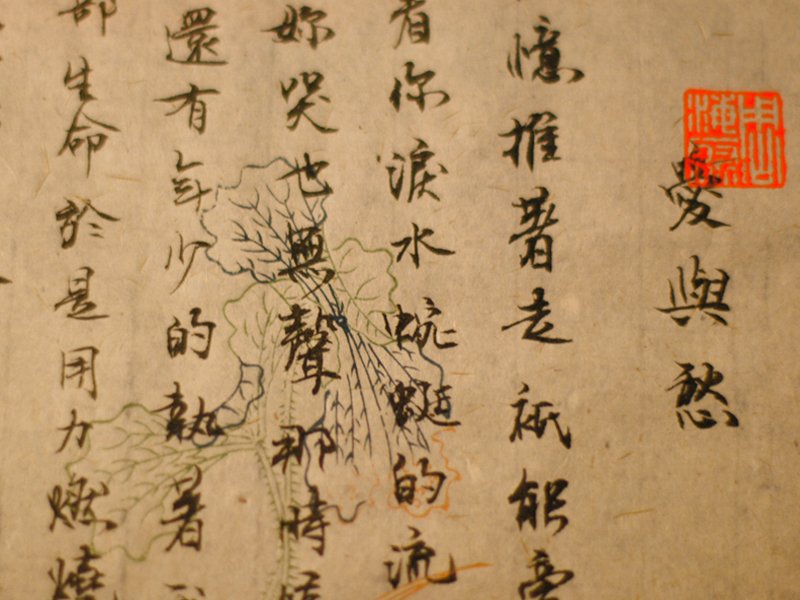 愛與愁
憶推著走祇能
看你淚水蜿蜒的流
妳哭也無聲那時
還有年少的執著
部生命於是用力燃燒